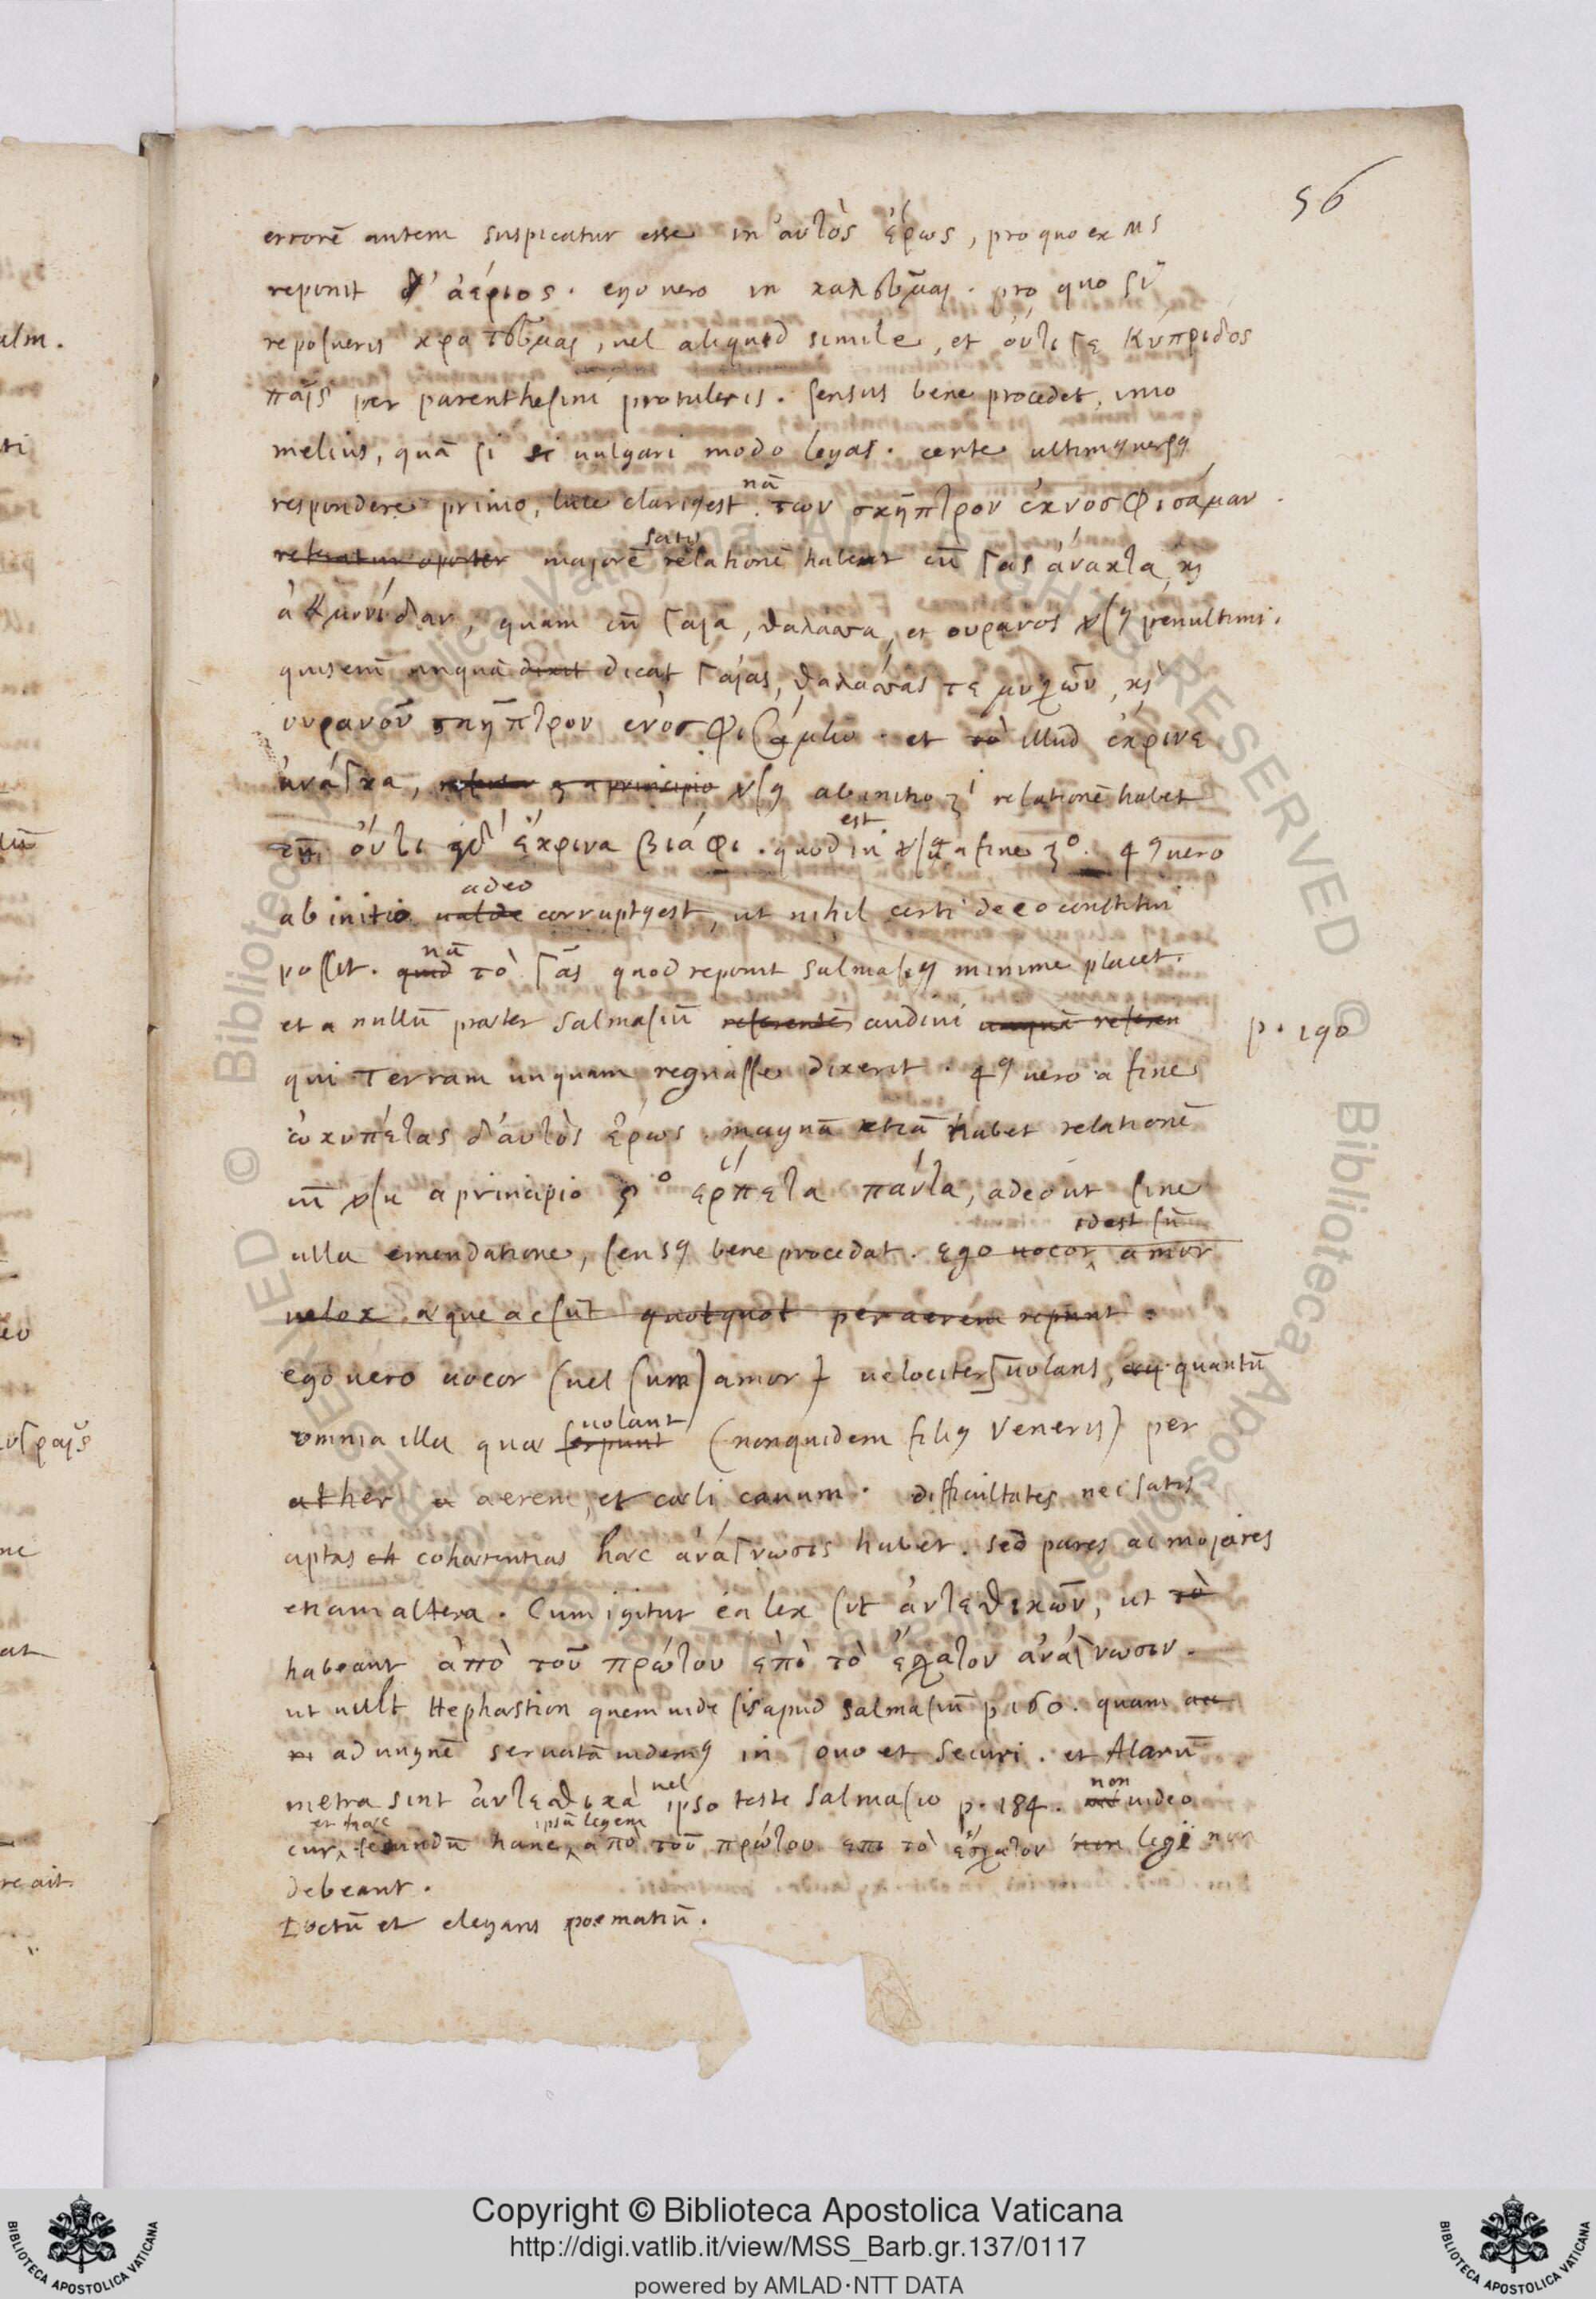 56
errorē autem suspicatur esse in αὐτὸς ἔρως, pro quo ex Ms
reponit δ' ἀέριος. ego vero in καλεῦμαι. pro quo si
reposueris κρατεῦμαι, vel aliquid simile, et οὔτι γε Κύπριδος
παῖς per parenthesim protuleris. sensus bene procedet, imo
melius, quā si si vulgari modo legas. certe ultimꝰ versꝰ
respondere primo, luce clariꝰ est. nā των σκῆπτρον ἐκνοσφισάμαν.
referatur oportet majorē satis relationē habent cū γας ἄνακτα, κὶ
ἀκμονίδαν, quam cū γαῖα, θαλασσα, et ουρανος penultimi.
quis enim unquā dixit dicat γαίας, θαλάσσας τε μυχῶν, κὶ
ουρανοῦ σκῆπτρον ενοσφισάμην. et τὸ illud ἔκρινε
ἀνάγκα, a principio ab initio 3ⁱ relationē habet
cū οὔτι ἔκρινα βιάφι. quod est in a fine 3º. 4ꝰ vero
ab initio valde adeo corruptꝰ est, ut nihil certi de eo constitui
possit. quid nā τὸ γᾶς quod reponit Salmasiꝰ minime placet.
et a nullū praeter Salmasiū referentē audivi unquā referen
p. 190
qui Terram unquam regnasse dixerit. 4ꝰ vero a fine
ὠκυπέτας δ' αὐτὸς ἔρως. magnā etiā habet relationē
cū a principio 5º ἕρπετα πάντα, adeo ut sine
ulla emendatione, sensꝰ bene procedat. ego vocor idest sū amor
velox aque ac sūt quotquot per aerem repunt.
ego vero vocor (vel sum) amor velociter volans, quantū
omnia illa quae serpunt volant (non quidem filiꝰ Veneris) per
ather a aerem, et coeli cavum. difficultates nec satis
aptas et cohaerentias haec ἀνάγνωσις habet. sed pares ac majores
etiam altera. Cum igitur ea lex sit ἀντιθετικῶν, ut τὸ
habeant ἀπὸ τοῦ πρώτου ἐπὶ τὸ ἔσχατον ἀνάγνωσιν.
ut vult Hephaestion quem vide sis apud Salmasiū p 160. quam
ad unguē servatā videmꝰ in ovo et securi. et Alarū
metra sint ἀντιθετικὰ vel ipso teste Salmasio p. 184. non video
cur et haec secundū hanc ipsā legem ἀπὸ τοῦ πρώτου επι τὸ ἔσχατον non legi non
debeant.
Doctū et elegans poematiū.
Copyright © Biblioteca Apostolica Vaticana
http://digi.vatlib.it/view/MSS_Barb.gr.137/0117
powered by AMLAD·NTT DATA
BIBLIOTECA APOSTOLICA VATICANA
BIBLIOTECA APOSTOLICA VATICANA